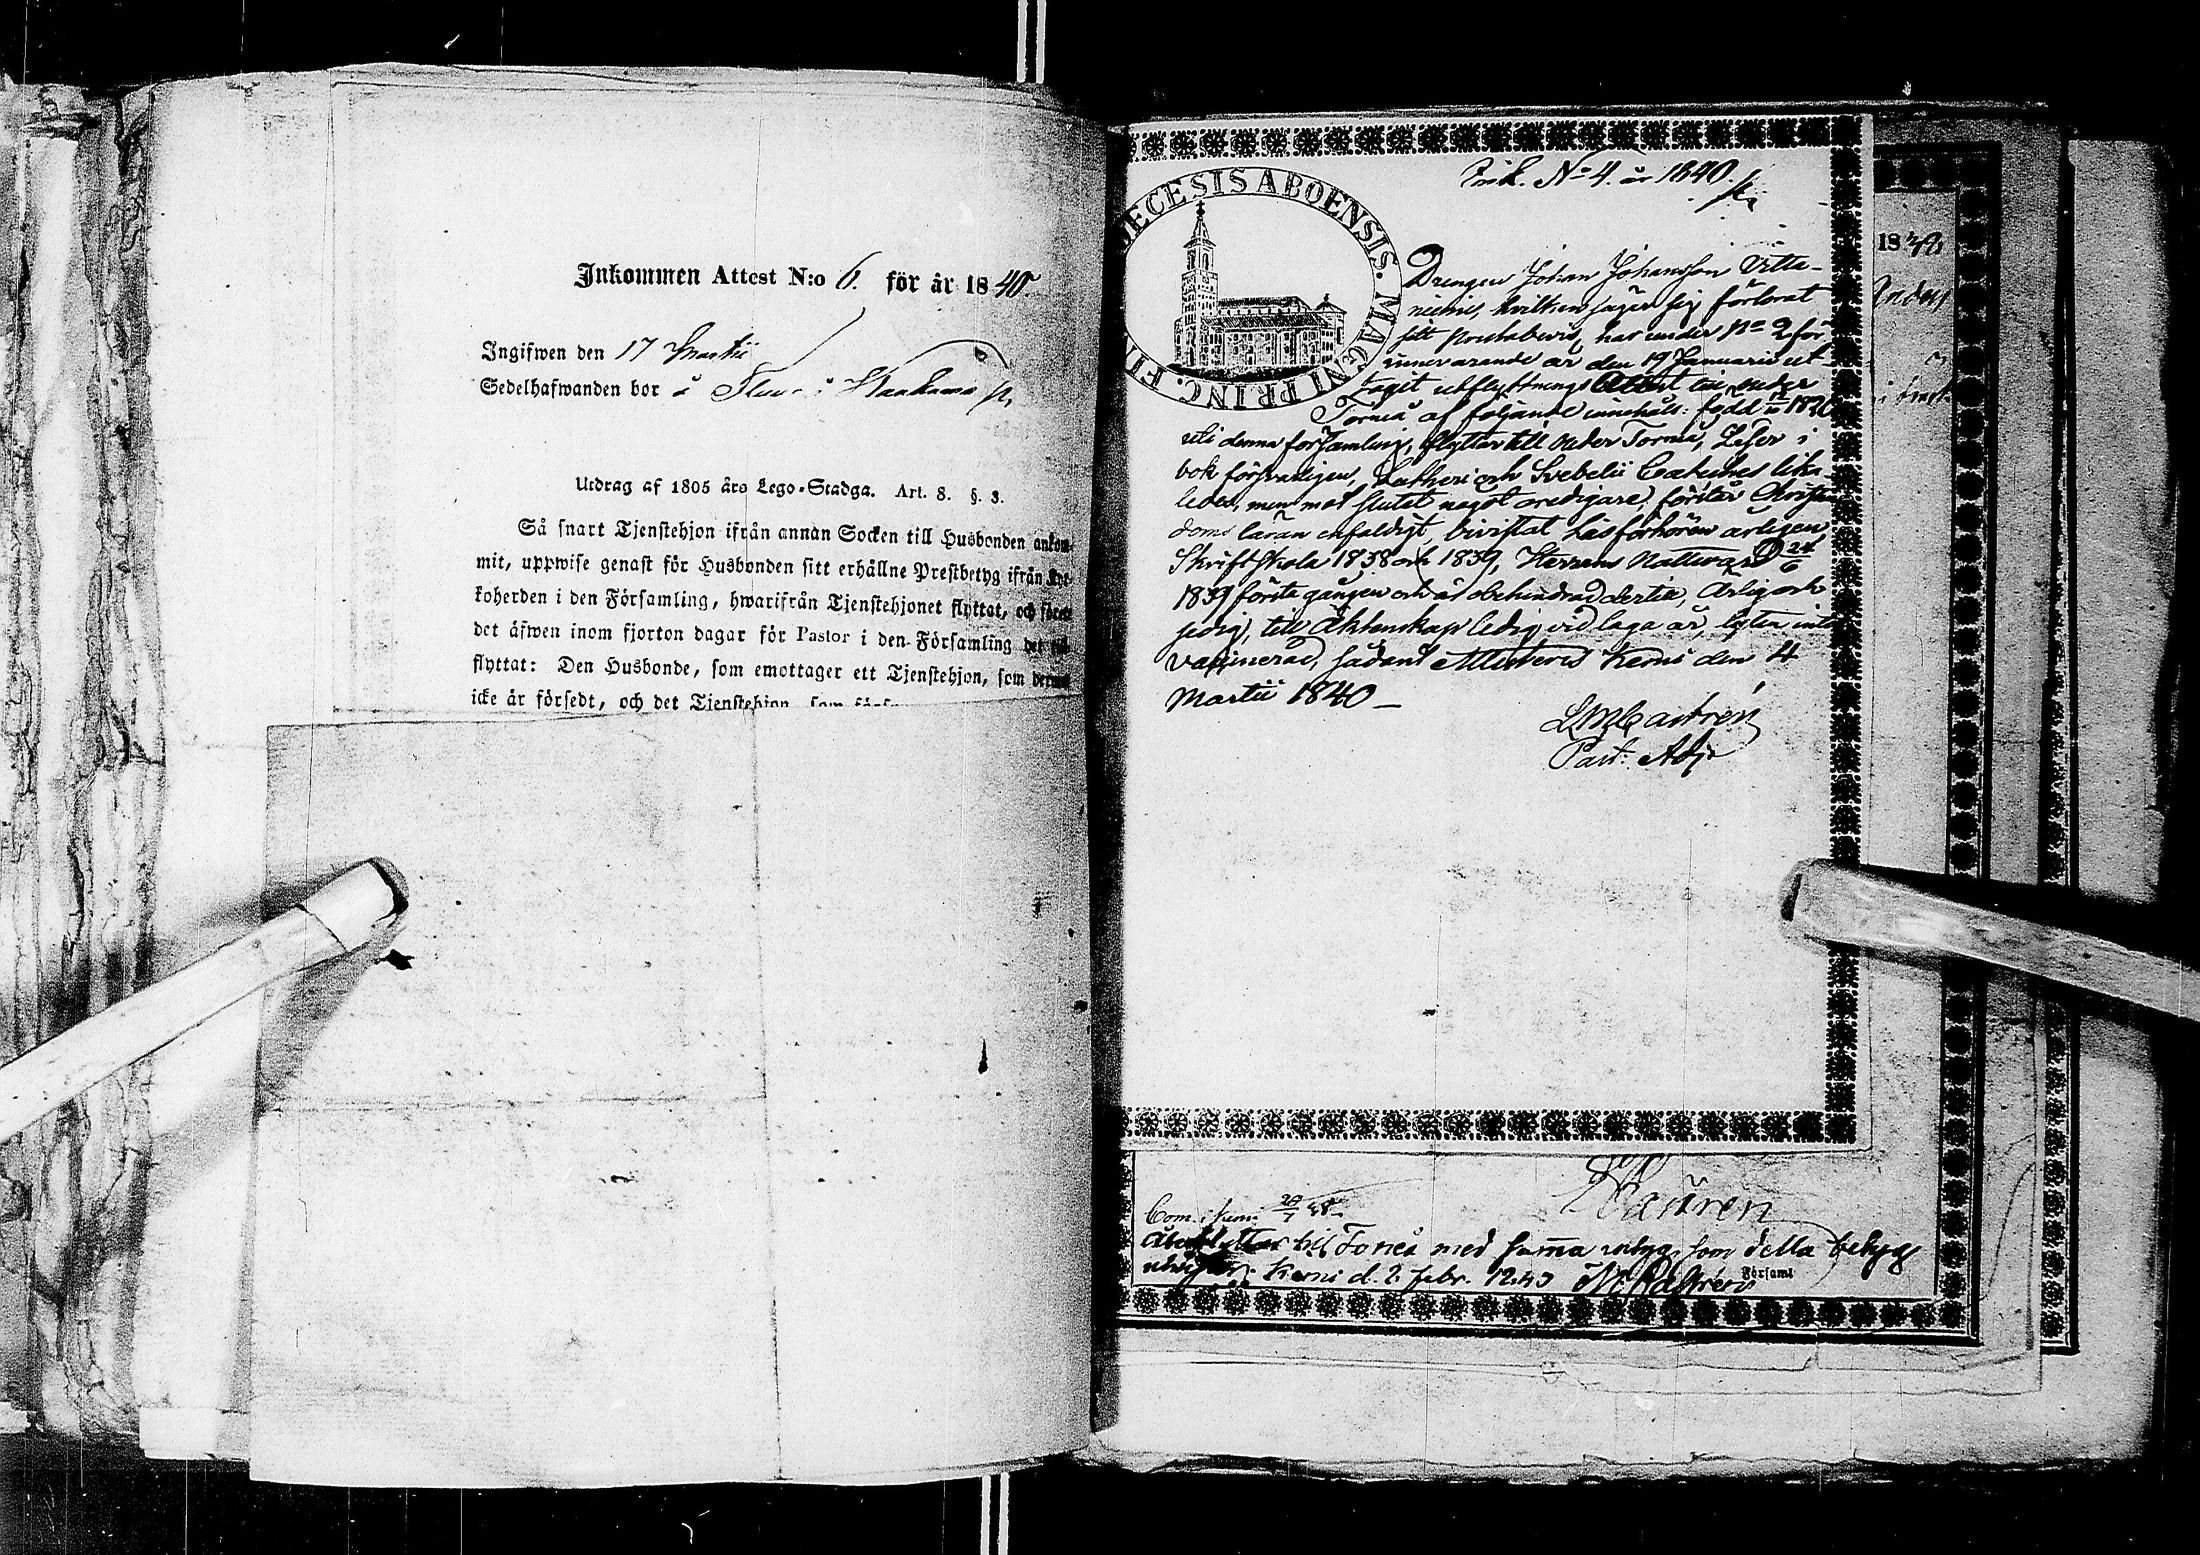 Inkommen Attest N:o 6. för år 1840.
Ingifwen den 17 Martii
Sedelhafwanden bor å i
Utdrag af 1805 års Lego-Stadga. Art. 8. §. 3.
Så snart Tjenstehjon ifrån annan Socken till Husbonden ankom-
mit, uppwise genast för Husbonden sitt erhållne Prestbetyg ifrån
koherden i den Församling, hwarifrån Tjenstehjonet flyttat, och
det äfwen inom fjorton dagar för Pastor i den Församling det
flyttat: Den Husbonde, som emottager ett Tjenstehjon, som
icke är försedt, och det Tjenstehjon, som
Ink. No 4. år 1840.
ECESIS ABOENSIS. MAGNI PRINC. FI
Drengen Johan Johansson Vitta-
niemi, hvilken säger sig förlorat
sitt Prestabevis, har under No 2 för
innevarande år den 19 Januarii ut-
tagit utflyttnings Attest till Neder
Torneå af följande innehåll: född 1820
uti denna församling, flyttar till Neder Torneå, Läser i
bok försvarligen, Lutheri och Svebelii Cateches lika
ledes, men mot slutet något oredigare, förstår Christen
doms läran enfaldigt, bivistat Läsförhören årligen,
Skriftskola 1838 och 1839, Herrens Nattvard 24/6
1839 första gången och är obehindrad dertill, Ärlig och
, till Äktenskap ledig vid laga år, inte
vaccinerad, sådant Attesteras Kemi den 4
Martii 1840 —
LMCastrén
Past: Adj:
1842
Castrén
Com. i Kemi
till Torneå med samma betyg, som detta betyg
utvisar. Kemi d. 2 febr. 1240 M. Castrén
Församl